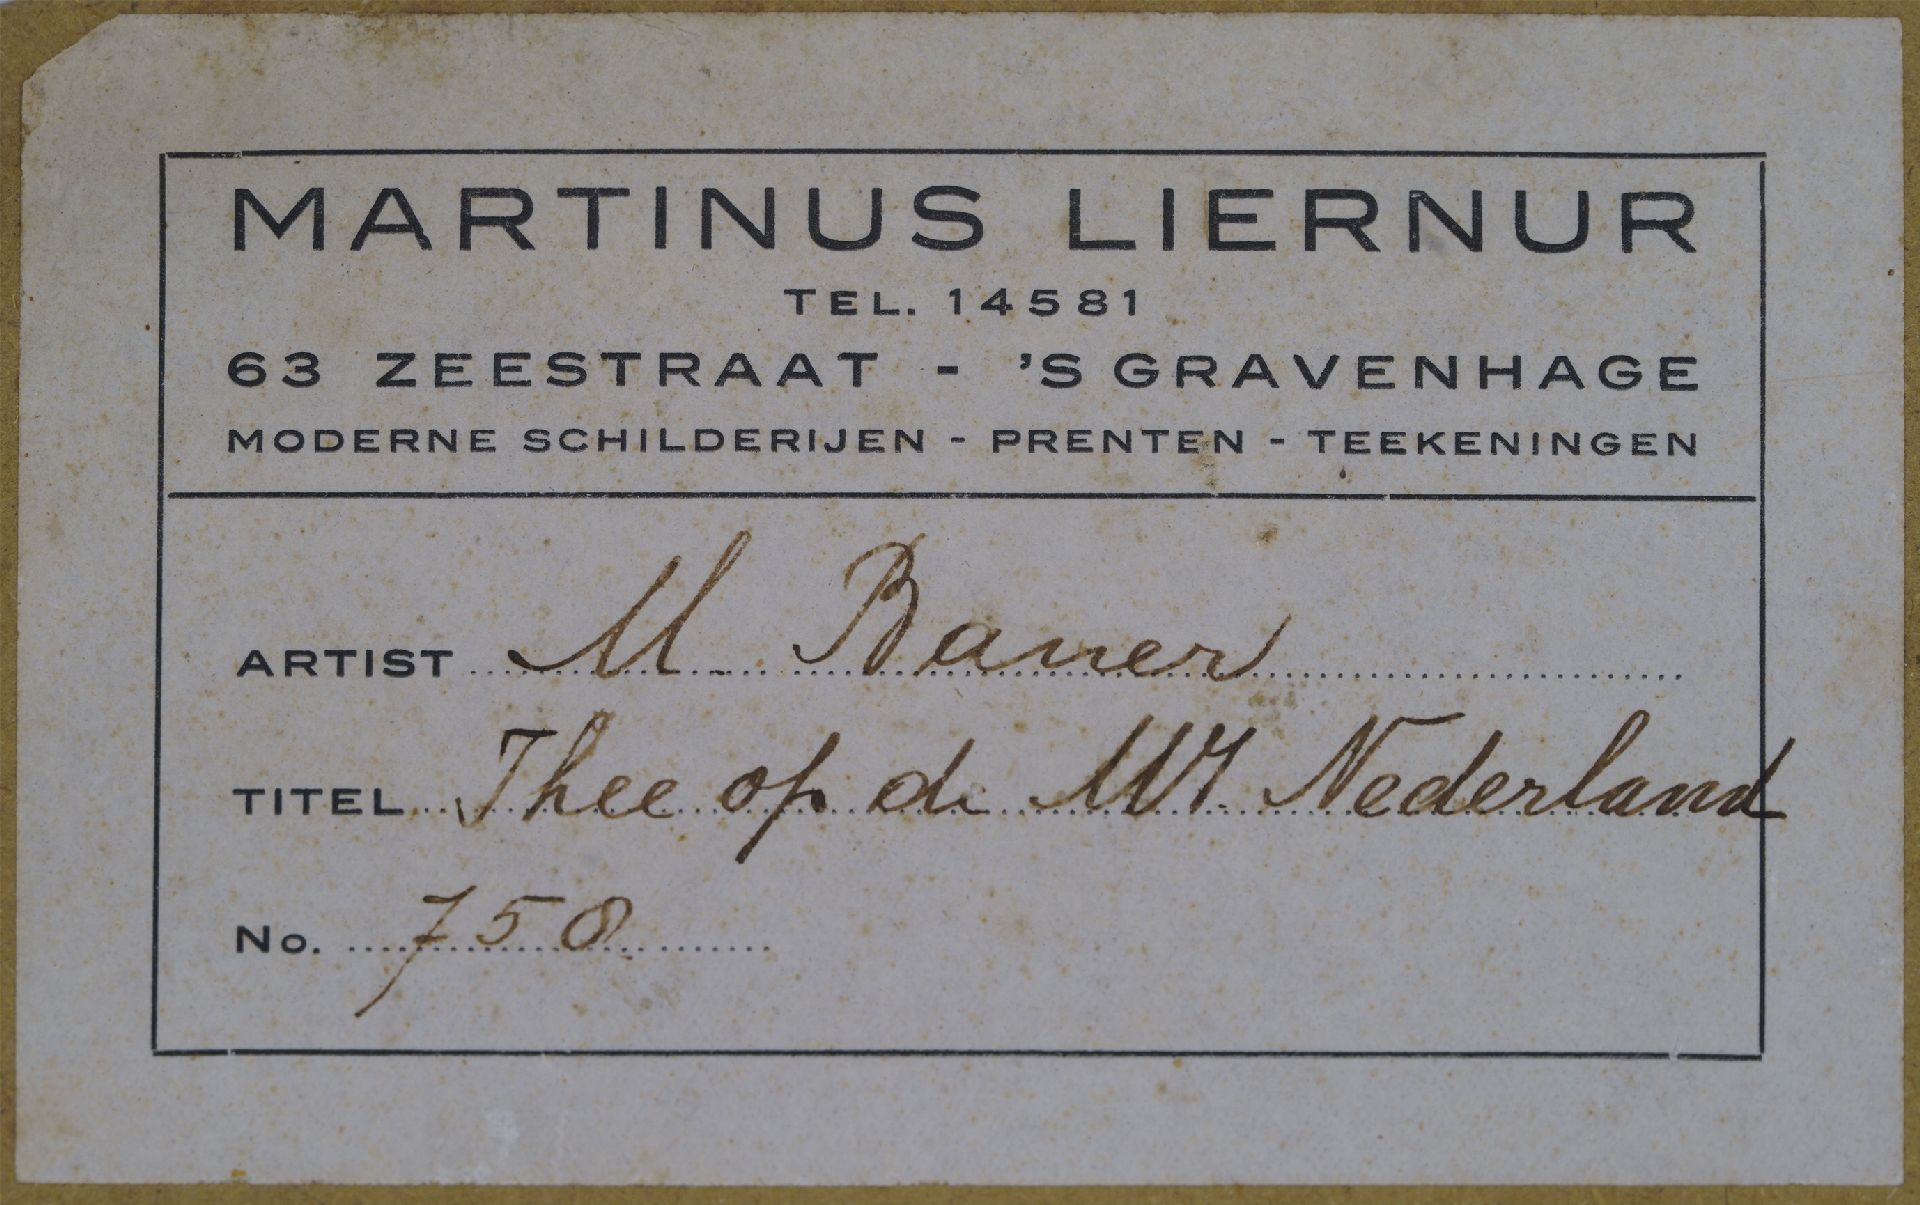 MARTINUS LIERNUR
TEL. 14581
63 ZEESTRAAT - 'S GRAVENHAGE
MODERNE SCHILDERIJEN - PRENTEN - TEEKENINGEN
ARTIST M. Bauer
TITEL Thee op de Nederland
No. 750